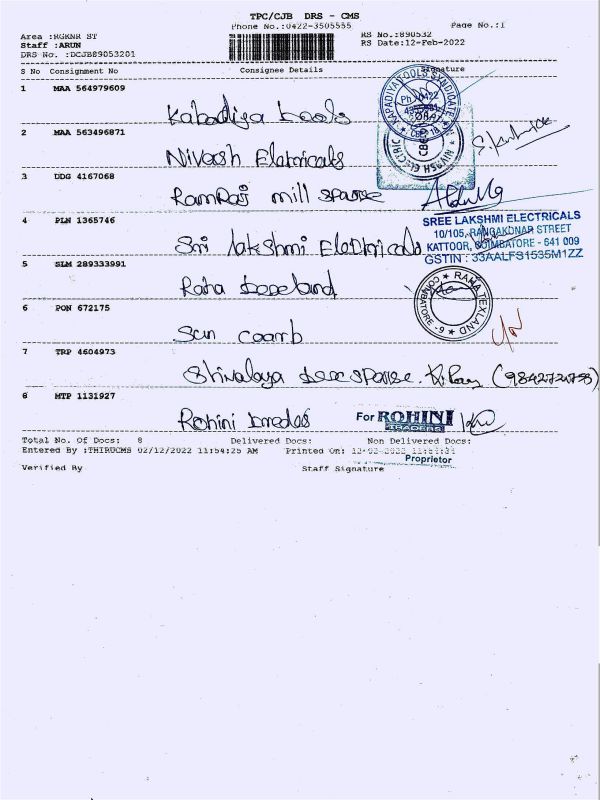 TPC/CJB DRS - CMS
Phone No.:0422-3505555 Page No.:1
Area :RGKNR ST RS No.:890532
Staff :ARUN RS Date:12-Feb-2022
DRS No. :DCJB89053201
S No Consignment No Consignee Details Signature
1 MAA 564979609
Kapadiya tools
KAPADIYA TOOLS SYNDICATE
Ph 0422
2 MAA 563496871
Nivash Eletricals
NIVASH ELECTRIC
3 UDG 4167068
RamRaj mill sparse
4 PLN 1365746
Sri lakshmi Eletricals
SREE LAKSHMI ELECTRICALS
10/105, RANGAKONAR STREET
KATTOOR, COIMBATORE - 641 009
GSTIN : 33AALFS1535M1ZZ
5 SLM 289333991
Raha texland
RAHA TEXLAND
COIMBATORE - 9
6 PON 672175
Sun coamb
7 TRP 4604973
Shivalaya texsparse
8 MTP 1131927
Rohini tredes
For ROHINI
TRADERS
Proprietor
Total No. Of Docs: 8 Delivered Docs: Non Delivered Docs:
Entered By :THIRUCMS 02/12/2022 11:54:25 AM Printed On:
Verified By Staff Signature